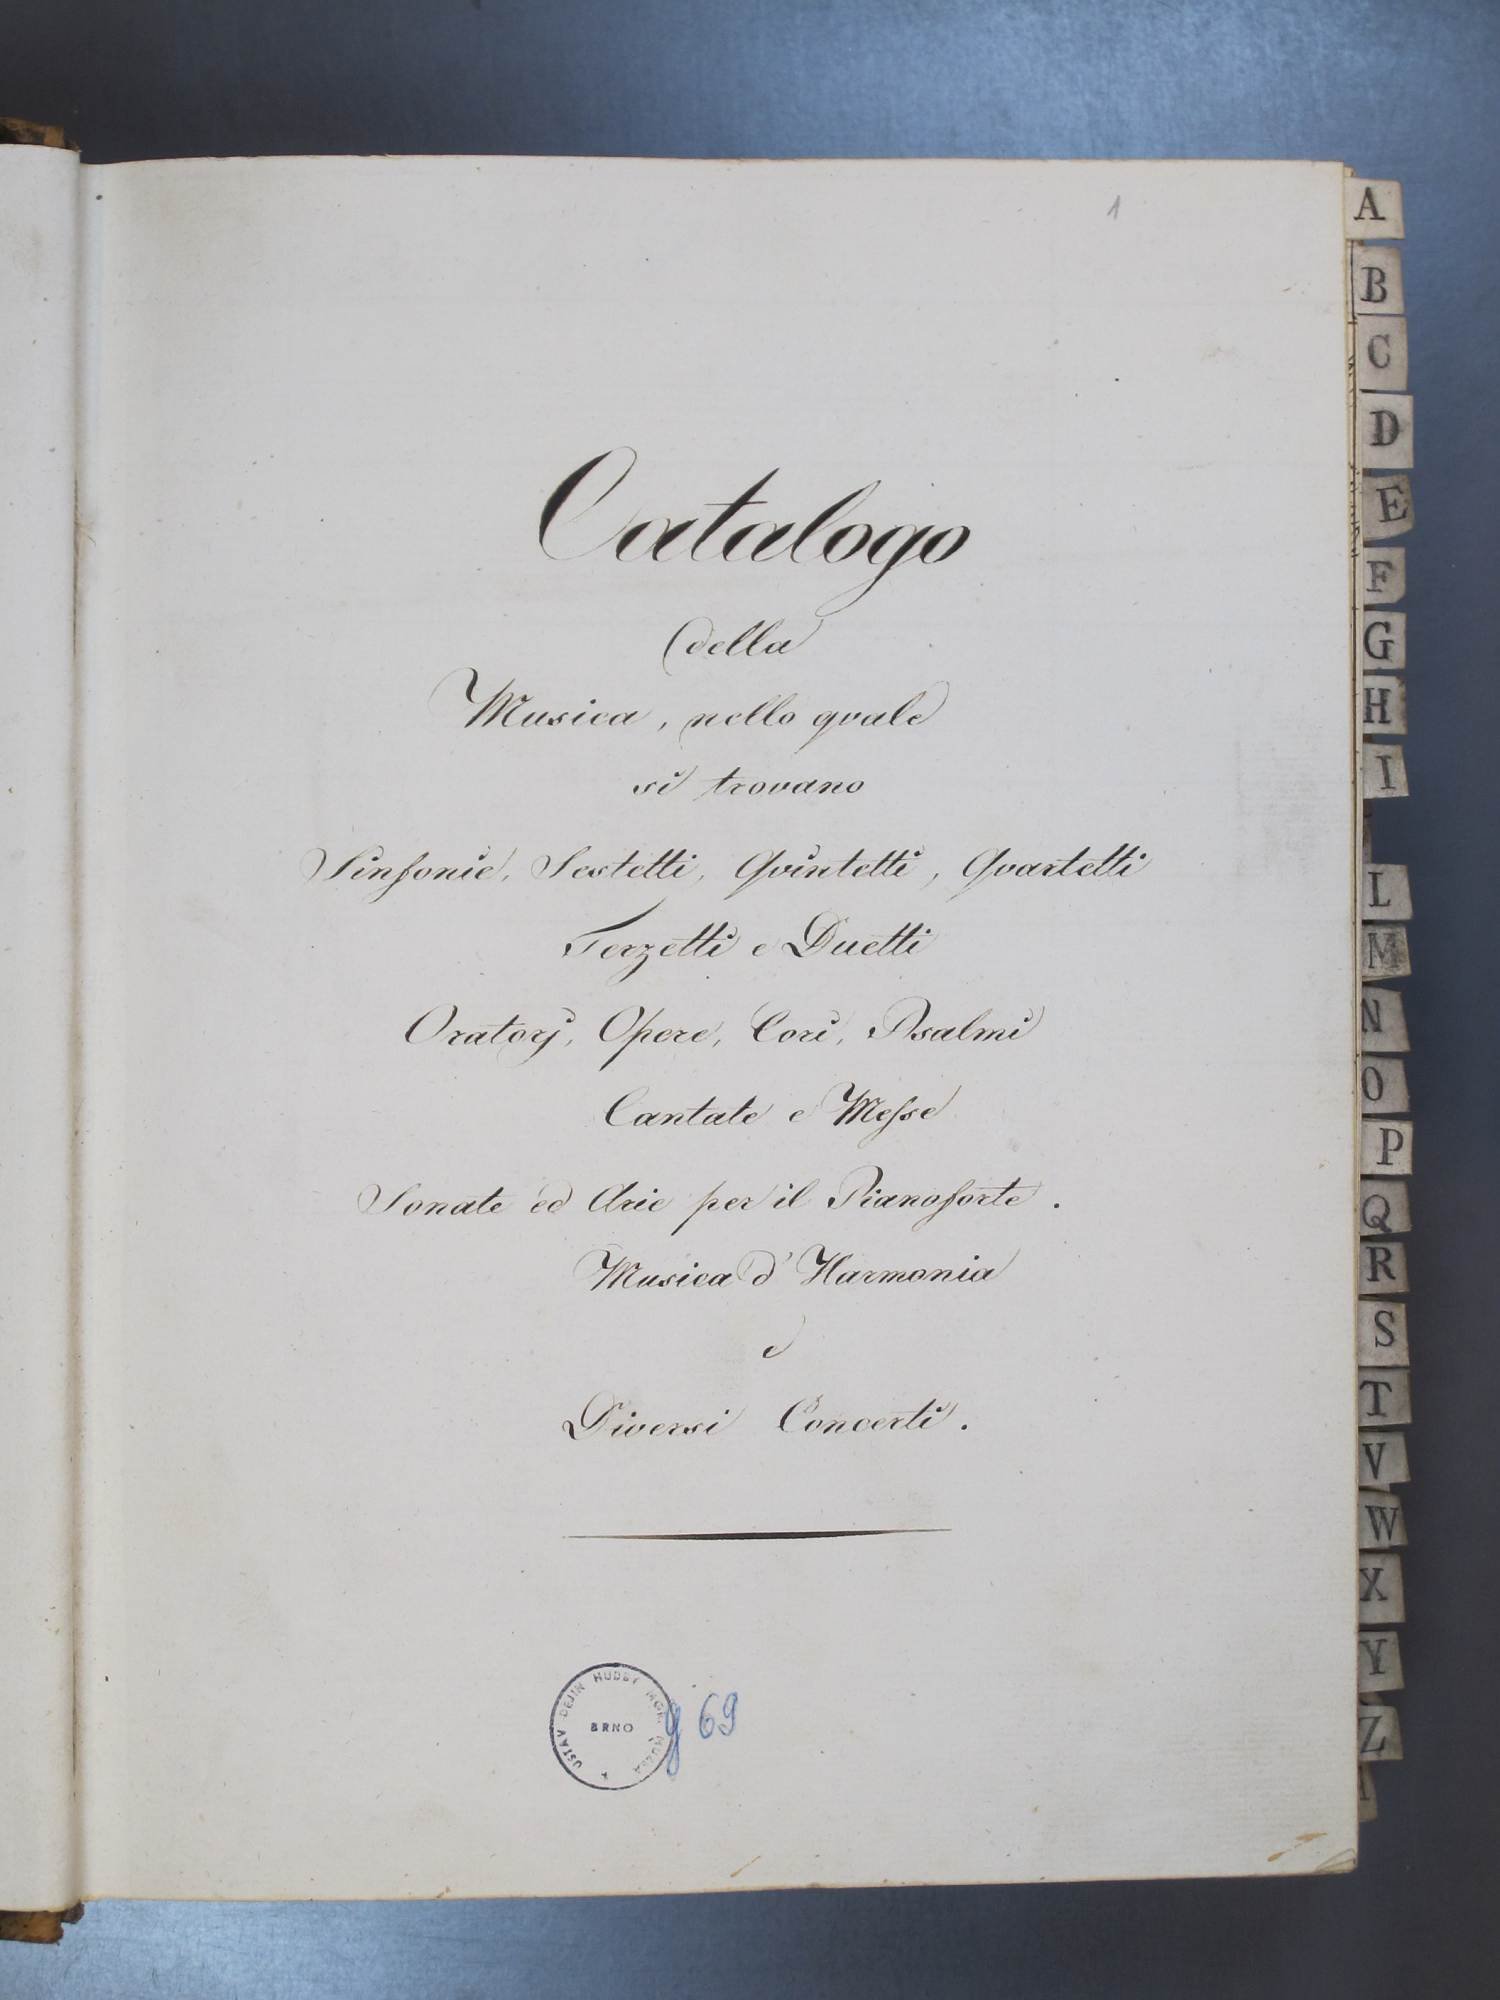 1
Catalogo
della
Musica, nello quale
si trovano
Sinfonie, Sestetti, Quintetti, Quartetti
Terzetti e Duetti
Oratorj, Opere, Cori, Psalmi
Cantate e Messe
Sonate ed Arie per il Pianoforte.
Musica d'Harmonia
e
Diversi Concerti.
USTAV DEJIN HUDBY MOR. MUZEA
BRNO
g 69
A
B
C
D
E
F
G
H
I
L
M
N
O
P
Q
R
S
T
V
W
X
Y
Z